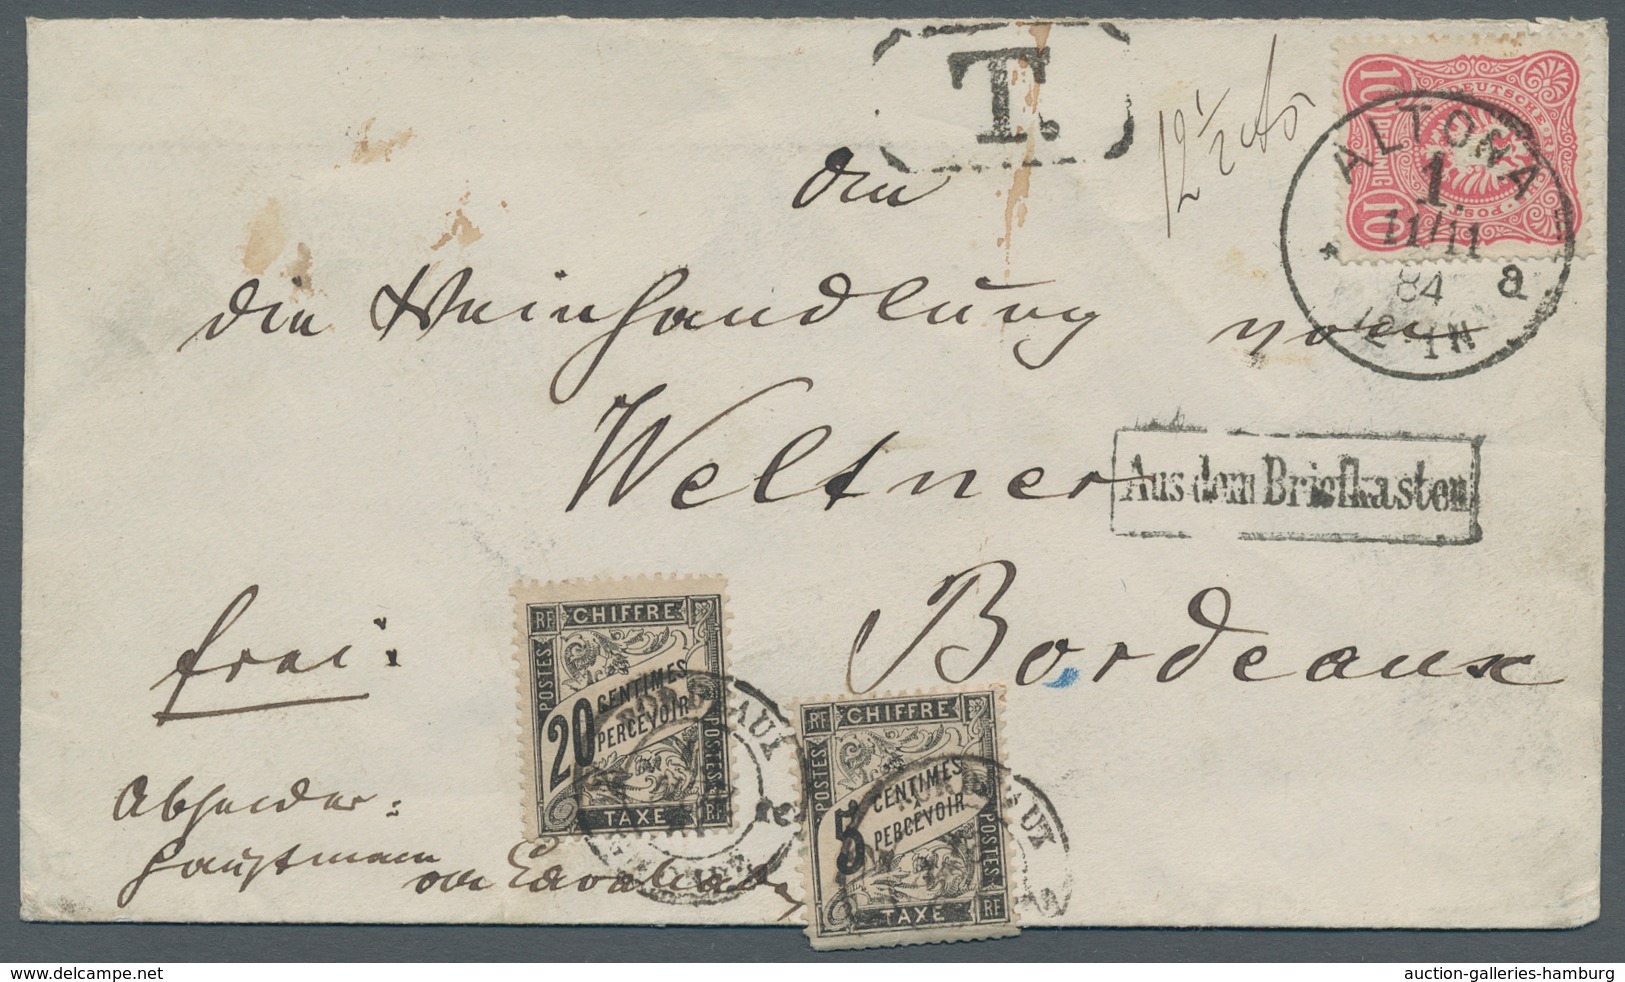 T.
12 1/2
10 PFENNIG 10
DEUTSCHE REICHS-POST
ALTONA
1.
11/11
84 a
12-1N
An
die Weinhandlung von
Weltner
Aus dem Briefkasten
Bordeaux
frei.
RF CHIFFRE
POSTES
20 CENTIMES
PERCEVOIR
POSTES
TAXE RF
BORDEAUX
RF CHIFFRE
POSTES
5 CENTIMES
À
PERCEVOIR
POSTES
TAXE RF
BORDEAUX
Absender:
Hauptmann von
www.delcampe.net
auction-galleries-hamburg